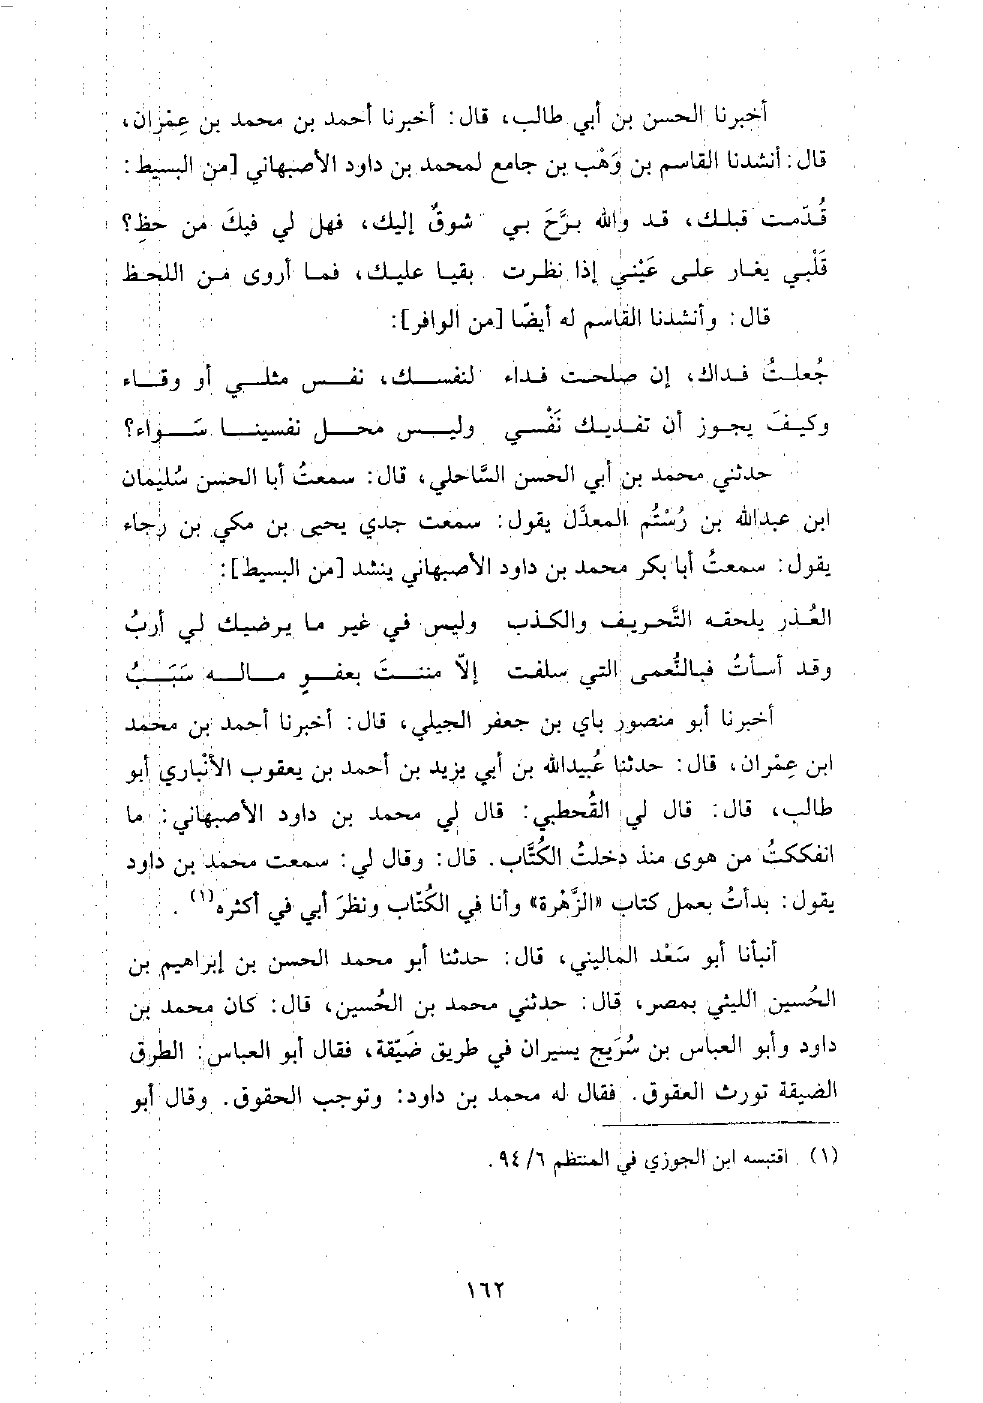 أخبرنا الحسن بن أبي طالب، قال: أخبرنا أحمد بن محمد بن عِمْران،
قال: أنشدنا القاسم بن وَهْب بن جامع لمحمد بن داود الأصبهاني [من البسيط:
قُدّمت قبلك، قد والله برَّحَ بي شوقٌ إليك، فهل لي فيكَ من حظِ؟
قَلْبي يغار على عَيْني إذا نظرت بقيا عليك، فما أروى من اللحظ
قال: وأنشدنا القاسم له أيضًا [من الوافر]:
جُعلتُ فداك، إن صلحت فداء لنفسك، نفس مثلي أو وقاء
وكيفَ يجوز أن تفديك نَفْسي وليس محل نفسينا سَواء؟
حدثني محمد بن أبي الحسن السَّاحلي، قال: سمعتُ أبا الحسن سُليمان
ابن عبدالله بن رُسْتُم المعدَّل يقول: سمعت جدي يحيى بن مكي بن رجاء
يقول: سمعتُ أبا بكر محمد بن داود الأصبهاني ينشد [من البسيط]:
العُذر يلحقه التَّحريف والكذب وليس في غير ما يرضيك لي أربُ
وقد أسأتُ فبالنُّعمى التي سلفت إلاّ مننتَ بعفوٍ ماله سَبَبُ
أخبرنا أبو منصور باي بن جعفر الجيلي، قال: أخبرنا أحمد بن محمد
ابن عِمْران، قال: حدثنا عُبيدالله بن أبي يزيد بن أحمد بن يعقوب الأنْباري أبو
طالب، قال: قال لي القُحطبي: قال لي محمد بن داود الأصبهاني: ما
انفككتُ من هوى منذ دخلتُ الكُتَّاب. قال: وقال لي: سمعت محمد بن داود
يقول: بدأتُ بعمل كتاب «الزَّهْرة» وأنا في الكُتّاب ونظرَ أبي في أكثره(١).
أنبأنا أبو سَعْد الماليني، قال: حدثنا أبو محمد الحسن بن إبراهيم بن
الحُسين الليثي بمصر، قال: حدثني محمد بن الحُسين، قال: كان محمد بن
داود وأبو العباس بن سُرَيج يسيران في طريق ضَيِّقة، فقال أبو العباس: الطرق
الضيقة تورث العقوق. فقال له محمد بن داود: وتوجب الحقوق. وقال أبو
(١) اقتبسه ابن الجوزي في المنتظم ٦/ ٩٤.
١٦٢